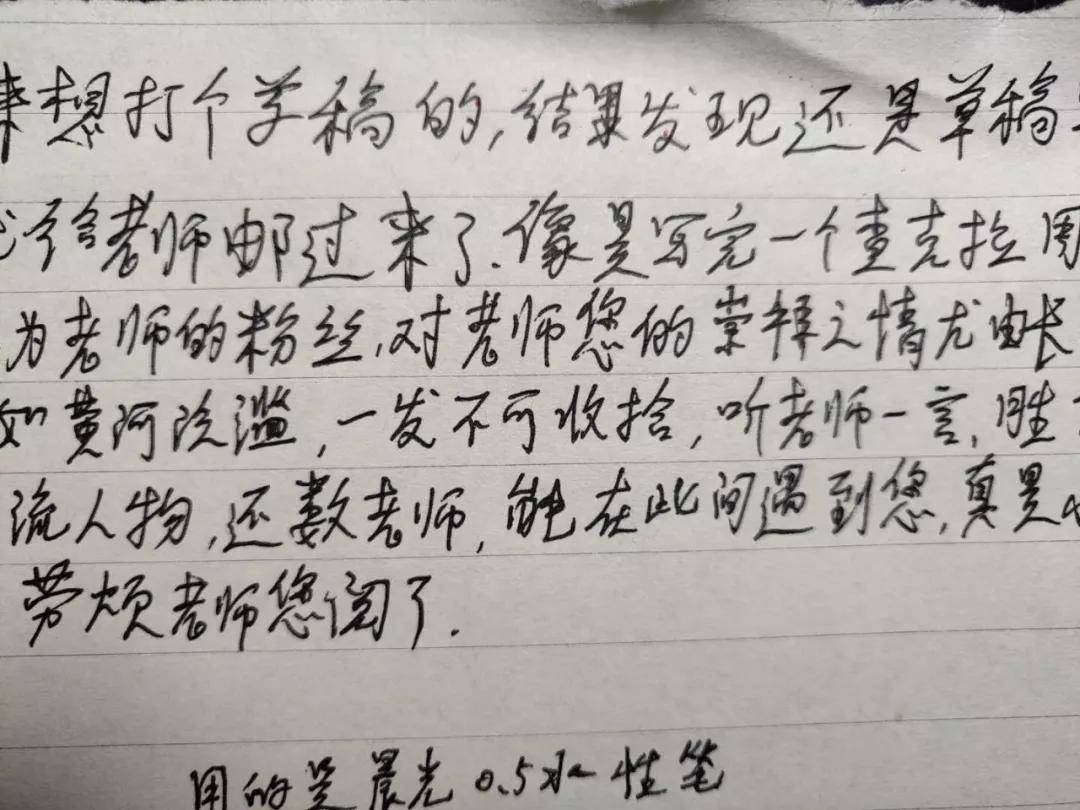 来想打个草稿的,结果发现还是草稿
给老师邮过来了.像是写完一个查克拉用
为老师的粉丝,对老师您的崇拜之情尤
如黄河泛滥,一发不可收拾,听老师一言,胜
流人物,还数老师,能在此间遇到您,真是
劳烦老师您阅了.
用的是晨光0.5水性笔